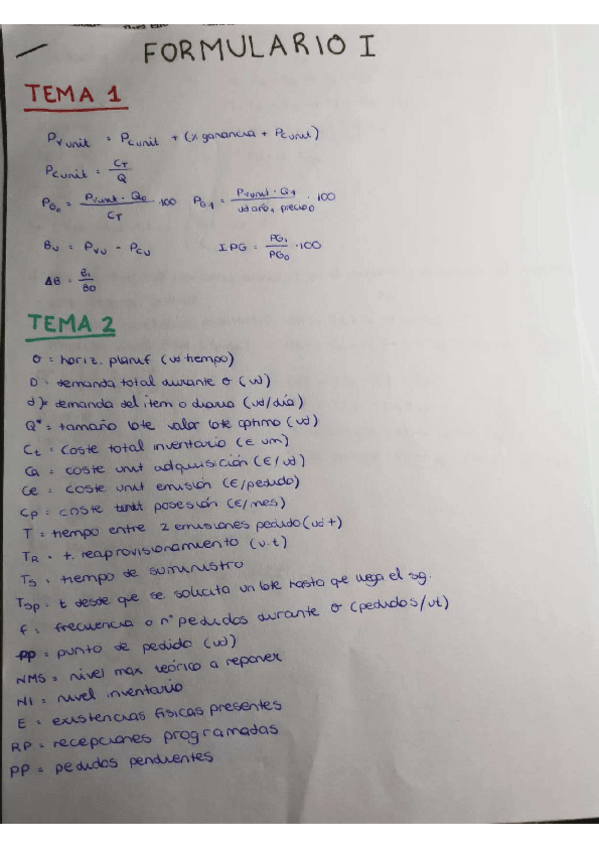 FORMULARIO I
TEMA 1
Pv unit = Pcunit + (x ganancia + Pcunit)
Pcunit = CT / Q
PG0 = Pvunit · Q0 / CT · 100 PG1 = Pvunit · Q1 / ud año, precio 0 · 100
Bu = Pvu - Pcu IPG = PG1 / PG0 · 100
ΔB = B1 / B0
TEMA 2
σ = horiz. planif (ud tiempo)
D = demanda total durante σ (u)
d = demanda del item o diaria (ud/día)
Q* = tamaño lote valor lote optimo (ud)
Ct = Coste total inventario (€ um)
Ca = coste unit adquisición (€/ud)
Ce = coste unit emisión (€/pedido)
Cp = coste unit posesión (€/mes)
T = tiempo entre 2 emisiones pedido (ud t)
TR = t. reaprovisionamiento (u.t)
Ts = tiempo de suministro
Tsp = t desde que se solicita un lote hasta que llega el sg.
f = frecuencia o nº pedidos durante σ (pedidos/ut)
PP = punto de pedido (u)
NMS = nivel max teórico a reponer
NI = nivel inventario
E = existencias físicas presentes
RP = recepciones programadas
PP = pedidos pendientes